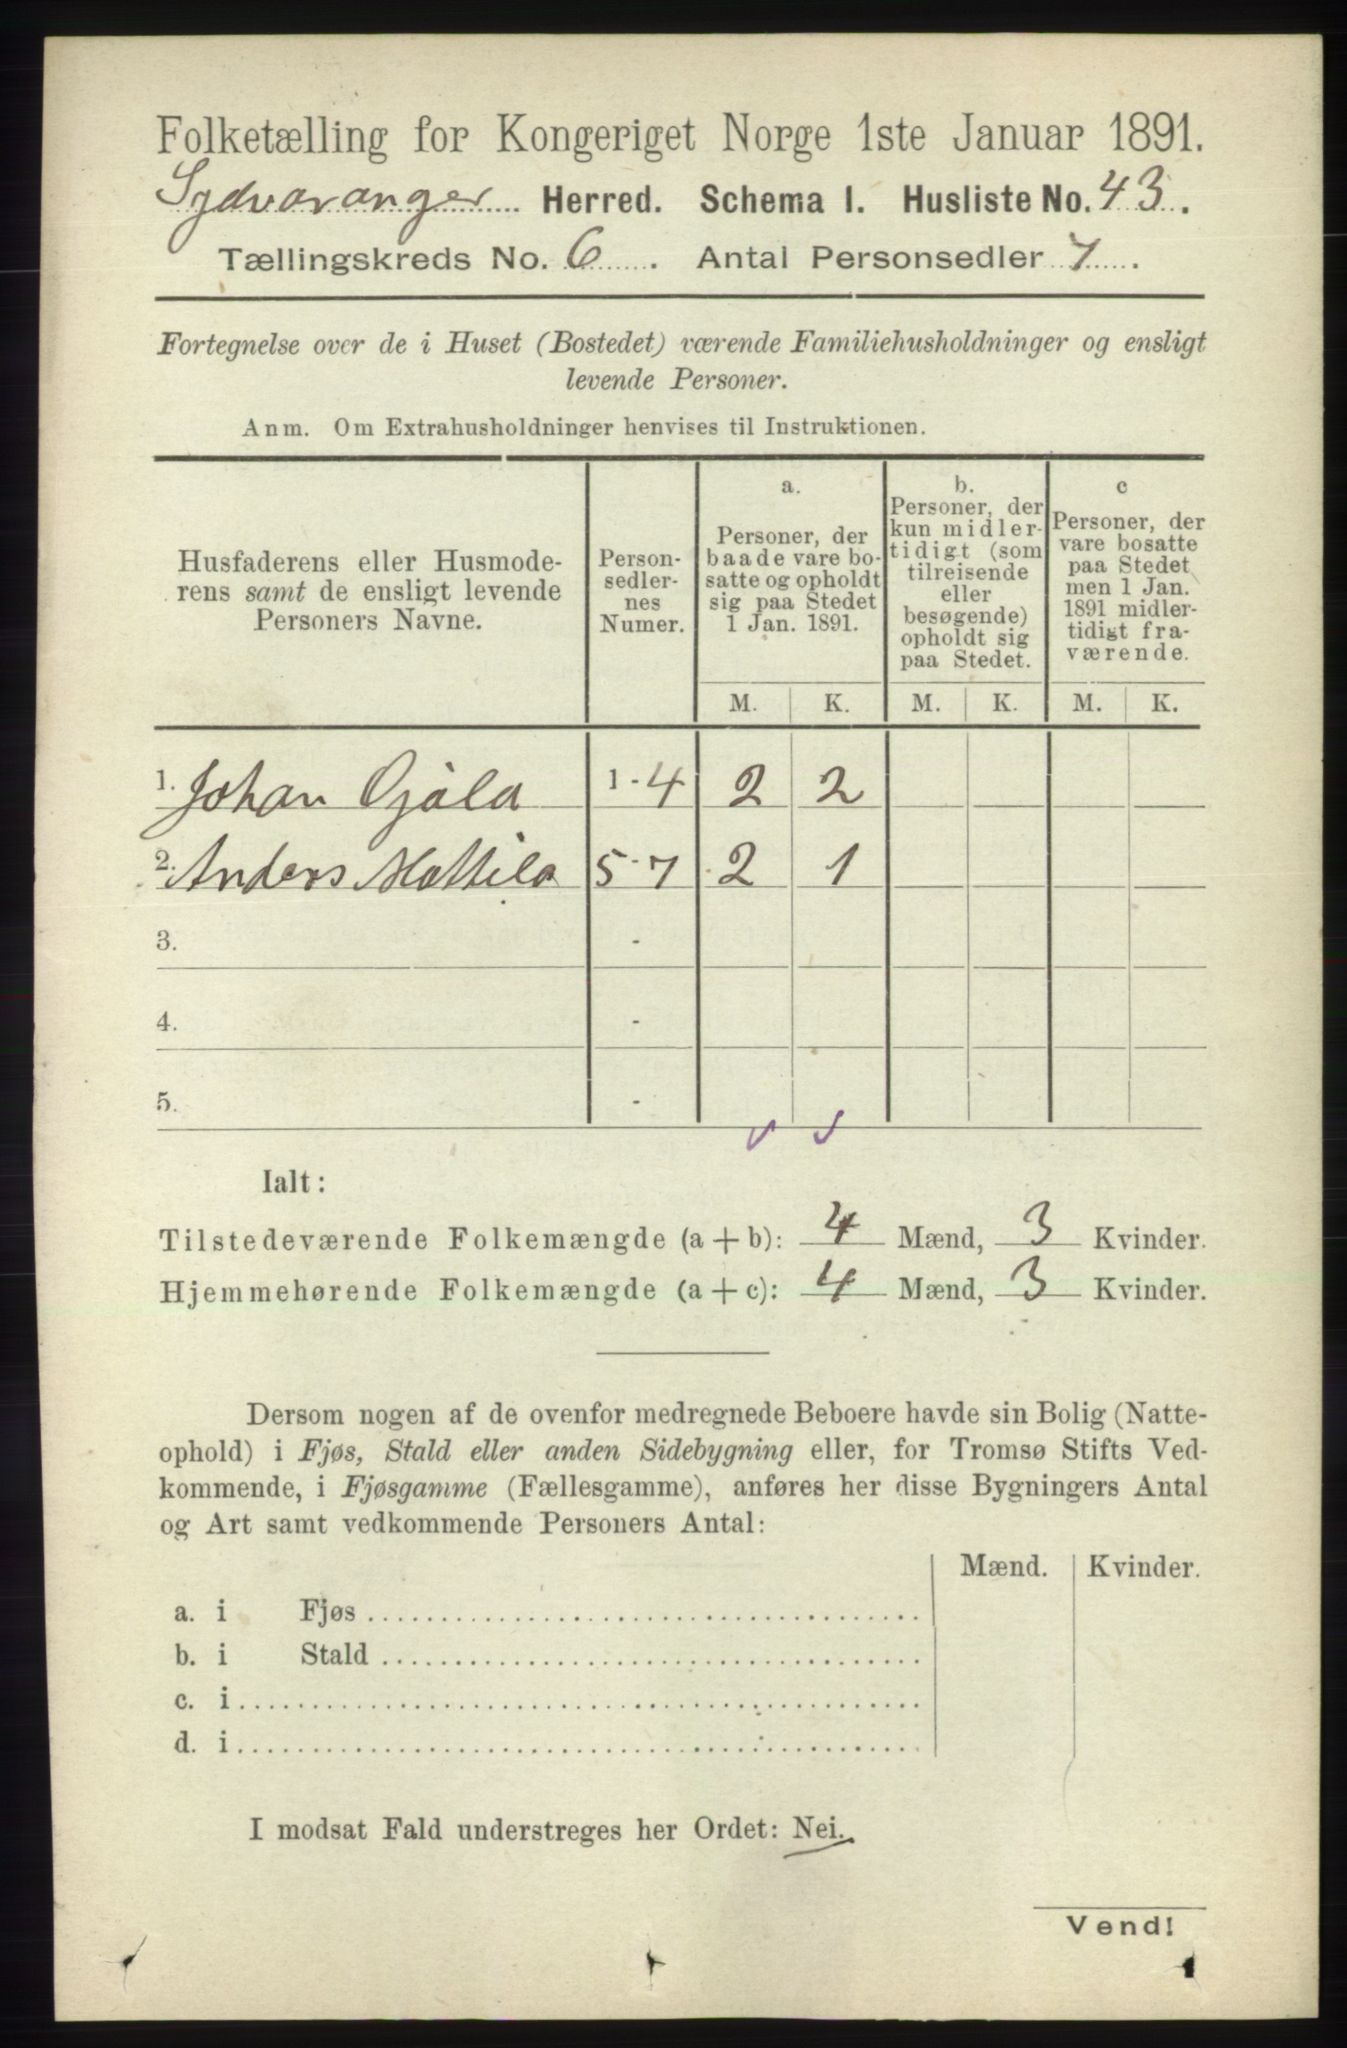 Folketælling for Kongeriget Norge 1ste Januar 1891.
Sydvaranger Herred. Schema I. Husliste No. 43.
Tællingskreds No. 6. Antal Personsedler 7.
Fortegnelse over de i Huset (Bostedet) værende Familiehusholdninger og ensligt
levende Personer.
Anm. Om Extrahusholdninger henvises til Instruktionen.
Husfaderens eller Husmode-
rens samt de ensligt levende
Personers Navne.
Person-
sedler-
nes
Numer.
a.
Personer, der
baade vare bo-
satte og opholdt
sig paa Stedet
1 Jan. 1891.
b.
Personer, der
kun midler-
tidigt (som
tilreisende
eller
besøgende)
opholdt sig
paa Stedet.
c
Personer, der
vare bosatte
paa Stedet
men 1 Jan.
1891 midler-
tidigt fra-
værende.
M. K. M. K. M. K.
1. Johan Ojala 1-4 2 2
2. Anders Mattila 5-7 2 1
3. -
4. -
5. -
Ialt:
Tilstedeværende Folkemængde (a + b): 4 Mænd, 3 Kvinder.
Hjemmehørende Folkemængde (a + c): 4 Mænd, 3 Kvinder.
Dersom nogen af de ovenfor medregnede Beboere havde sin Bolig (Natte-
ophold) i Fjøs, Stald eller anden Sidebygning eller, for Tromsø Stifts Ved-
kommende, i Fjøsgamme (Fællesgamme), anføres her disse Bygningers Antal
og Art samt vedkommende Personers Antal:
Mænd. Kvinder.
a. i Fjøs
b. i Stald
c. i
d. i
I modsat Fald understreges her Ordet: Nei.
Vend!